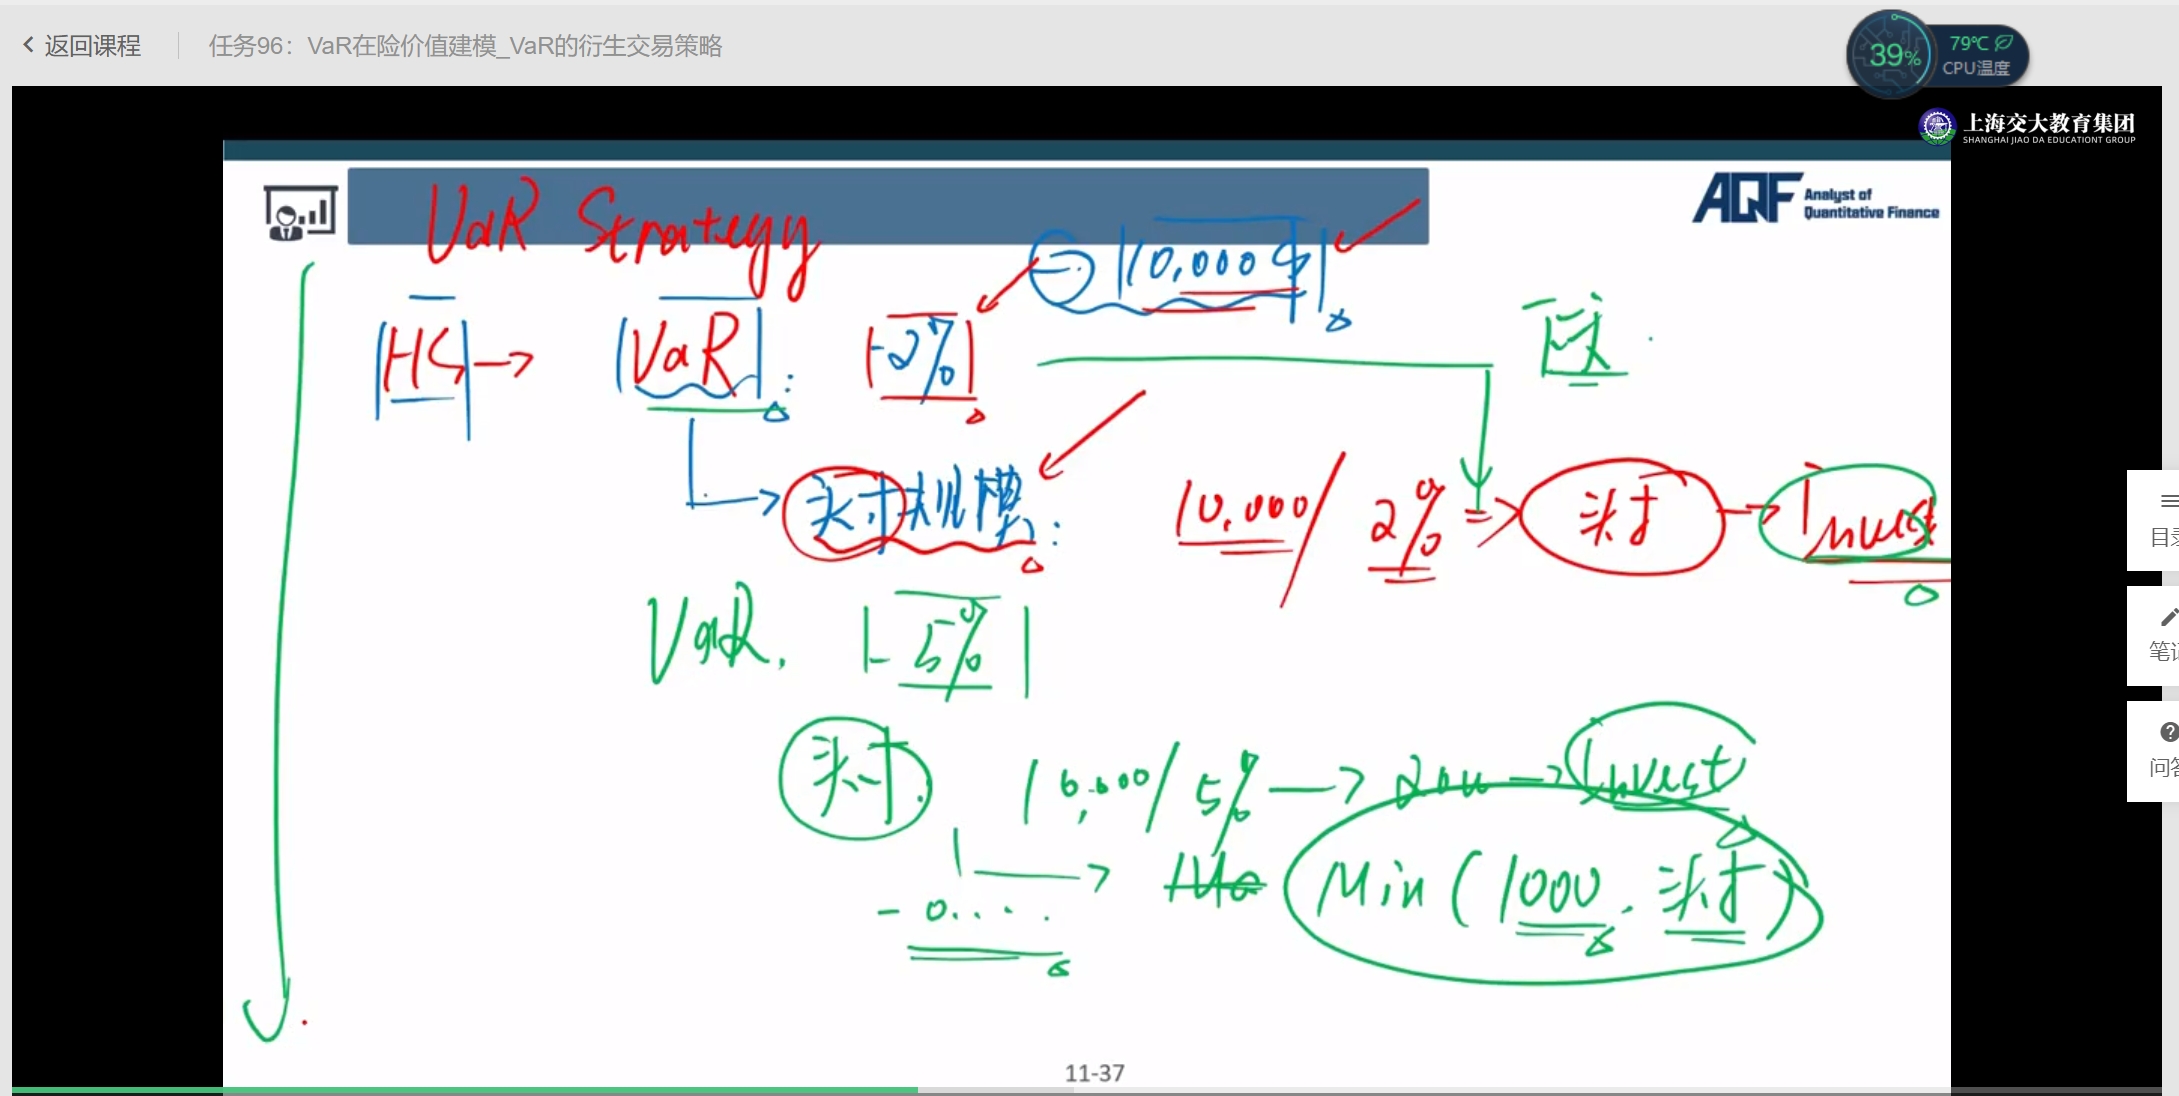 返回课程
任务96：VaR在险价值建模_VaR的衍生交易策略
39%
79℃
CPU温度
上海交大教育集团
SHANGHAI JIAO DA EDUCATIONT GROUP
AQF Analyst of
Quantitative Finance
VaR Strategy
10,000
HS → VaR : -2%
头寸规模: 10,000/2% => 头寸 → Invest
目录
VaR. -5%
笔记
头寸. 10,000/5% → → Invest
问答
Min(1000. 头寸)
- 0....
11-37